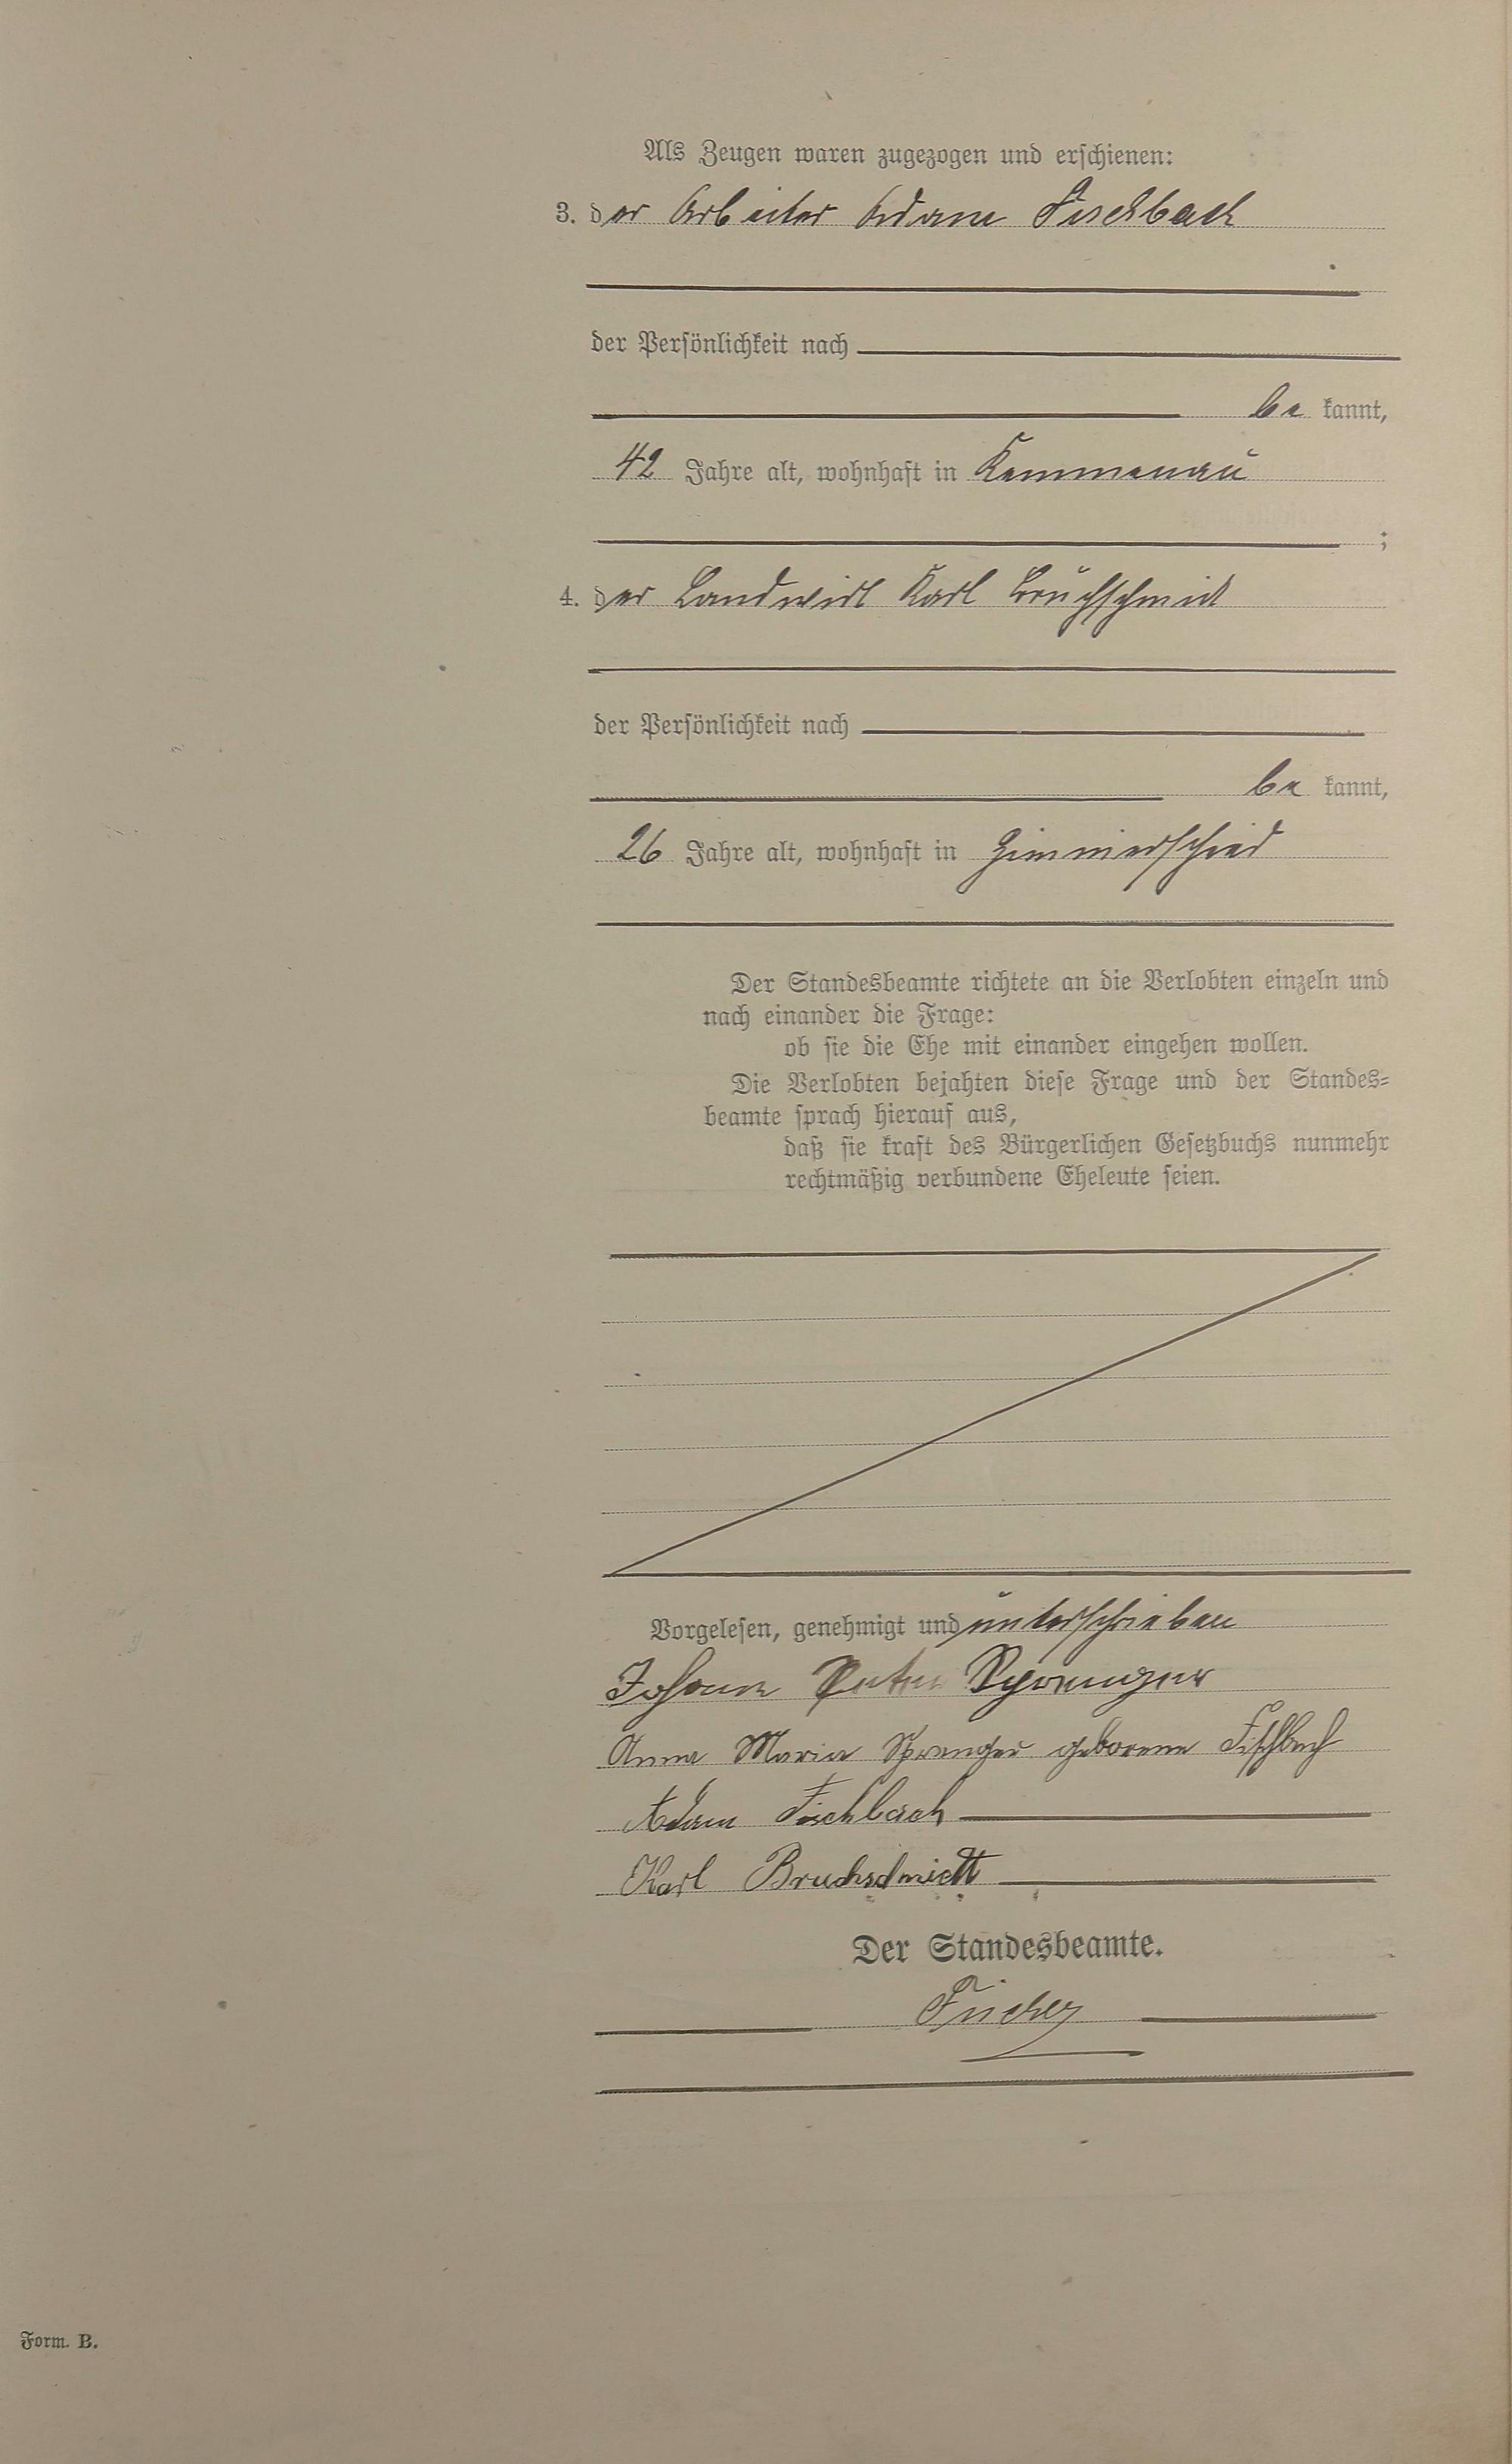 Als Zeugen waren zugezogen und erschienen:
3. der Arbeiter Adam Fischbach
der Persönlichkeit nach
be kannt,
42 Jahre alt, wohnhaft in Kemmenau
;
4. der Landwirt Karl Bruchschmidt
der Persönlichkeit nach
be kannt,
26 Jahre alt, wohnhaft in Zimmerschied
Der Standesbeamte richtete an die Verlobten einzeln und
nach einander die Frage:
ob sie die Ehe mit einander eingehen wollen.
Die Verlobten bejahten diese Frage und der Standes=
beamte sprach hierauf aus,
daß sie kraft des Bürgerlichen Gesetzbuchs nunmehr
rechtmäßig verbundene Eheleute seien.
Vorgelesen, genehmigt und unterschrieben
Johann Peter Sprenger
Anna Maria Sprenger geborene Fischbach
Adam Fischbach
Karl Bruchschmidt
Der Standesbeamte.
Form. B.